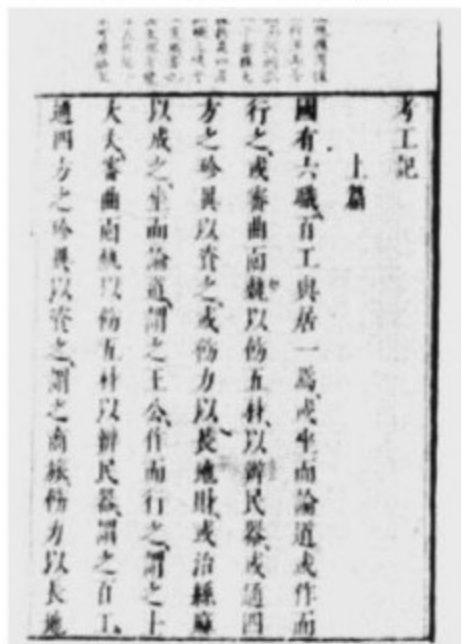 考工記
上篇
國有六職、百工與居一焉、或坐而論道或作而
行之、或審曲面埶以飭五材、以辨民器、或通四
方之珍異以資之、或飭力以長地財、或治絲麻
以成之、坐而論道、謂之王公、作而行之、謂之士
大夫、審曲面埶以飭五材以辨民器、謂之百工、
通四方之珍異以資之、謂之商旅、飭力以長地